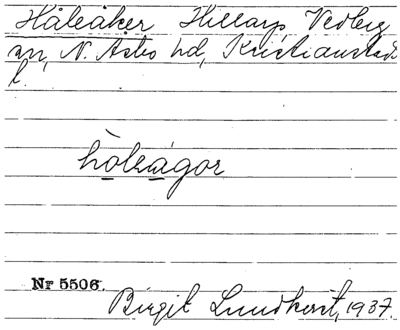 Håleåker Hillarps Vedbyg
sn, N. Åsbo hd, Kristianstads
l.
hòleágor
Nr 5506.
Birgit Lundkvist, 1937.